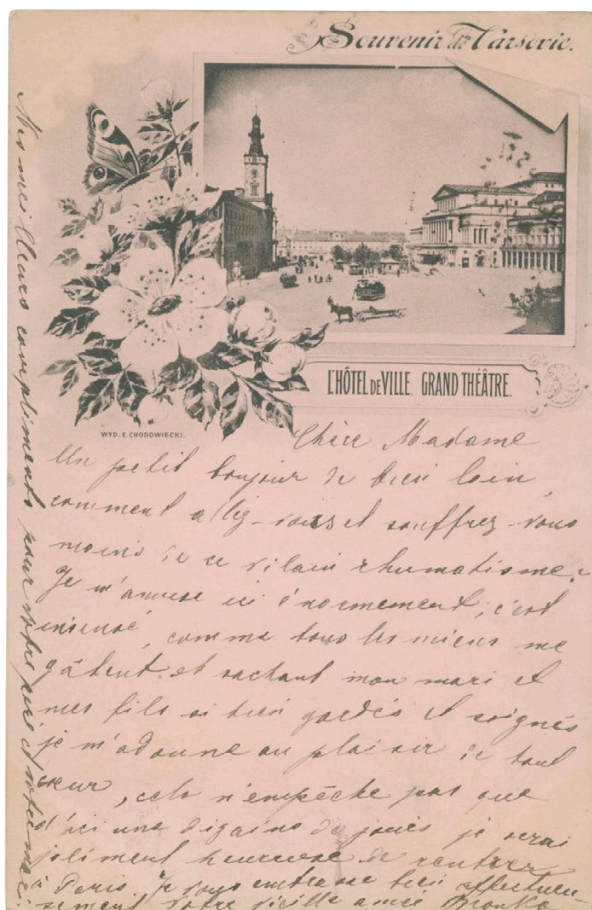 Souvenir de Varsovie.
L'HÔTEL DE VILLE. GRAND THÉÂTRE.
WYD. E. CHODOWIECKI.
Chère Madame
Un petit bonjour de bien loin,
comment allez-vous et souffrez-vous
moins de ce vilain rhumatisme?
Je m'amuse ici énormement, c'est
insensé, comme tous les miens me
gâtent et sachant mon mari et
mes fils si bien gardés et soignés
je m'adonne au plaisir de tout
cœur, cela n'empêche pas que
d'ici une dizaine de jours je serai
joliment heureuse de rentrer
à Paris. Je vous embrasse bien affectueu-
sement votre vieille amie Bronka
Mes meilleurs compliments pour votre père et votre mari.